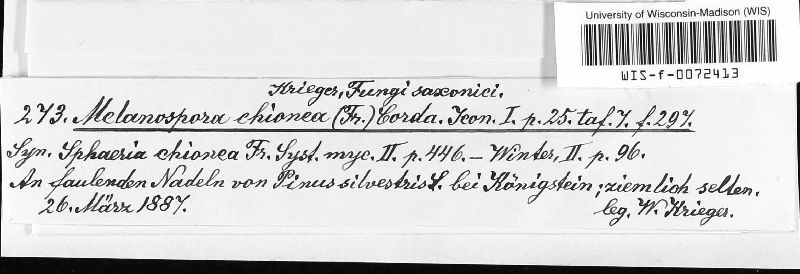 University of Wisconsin-Madison (WIS)
WIS-f-0072413
Krieger, Fungi saxonici.
273. Melanospora chionea (Fr.) Corda. Icon. I. p. 25. taf. 7. f. 297.
Syn. Sphaeria chionea Fr. Syst. myc. II. p. 446. – Winter, II. p. 96.
An faulenden Nadeln von Pinus silvestris L. bei Königstein; ziemlich selten.
26. März 1887.
leg. W. Krieger.